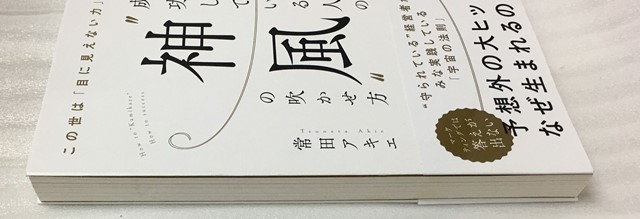 予想外の大ヒッ
なぜ生まれるの
"守られている"経営者
みな実践している
「宇宙の法則」
マーケ
ティングでは
答えが
出ない
成功している人の
"神風"
の吹かせ方
Tsuneta Akie
常田アキエ
この世は「目に見えない力」
How to Kamikaze